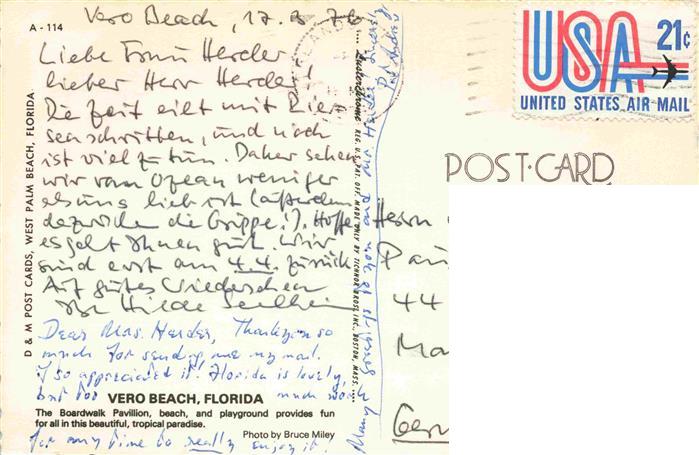 A - 114
Vero Beach, 17.3.76
Liebe Frau Herder,
lieber Herr Herder!
Die Zeit eilt mit Rie-
senschritten, und noch
ist viel zu tun. Daher sehen
wir vom Ozean weniger
als uns lieb ist (außerdem
dazwischen die Grippe!). Hoffe,
es geht Ihnen gut. Wir
sind erst am 4.4. zurück
Auf gutes Wiedersehen
Ihre Hilde
Dear Mrs. Herder, Thank you so
much for sending me my mail.
I so appreciated it! Florida is lovely,
but too much work
for any time to really enjoy it.
Many greetings to you and Mr. Herder
VERO BEACH, FLORIDA
The Boardwalk Pavillion, beach, and playground provides fun
for all in this beautiful, tropical paradise.
Photo by Bruce Miley
D & M POST CARDS, WEST PALM BEACH, FLORIDA
REG. U.S. PAT. OFF. MADE ONLY BY TICHNOR BROS. INC., BOSTON, MASS.
USA 21¢
UNITED STATES AIR MAIL
POST-CARD
Herrn
44
Ma